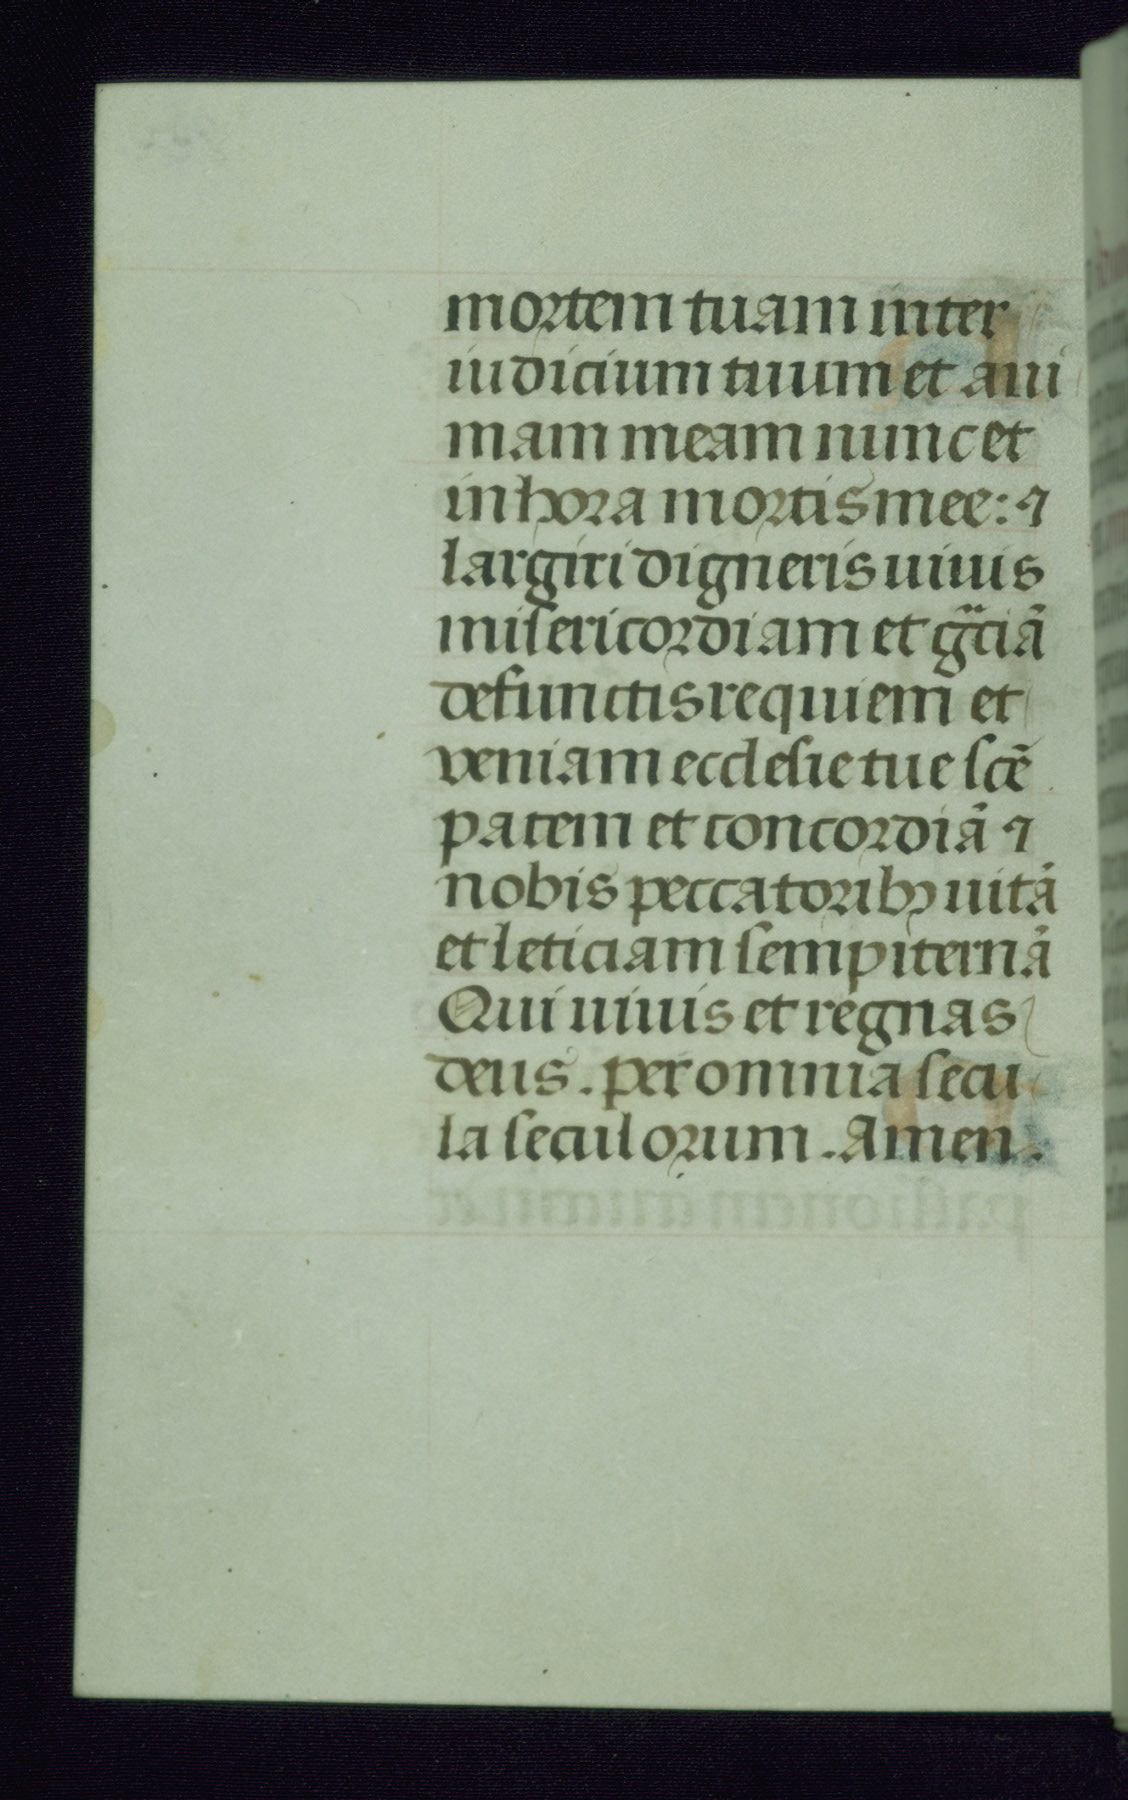 mortem tuam inter
iudicium tuum et ani
mam meam nunc et
in hora mortis mee: ⁊
largiri digneris uiuis
misericordiam et gr̃ciã
defunctis requiem et
veniam ecclesie tue scẽ
pacem et concordiã ⁊
nobis peccatoribꝫ uitã
et leticiam sempiternã
Qui uiuis et regnas
deus. per omnia secu
la seculorum. Amen.